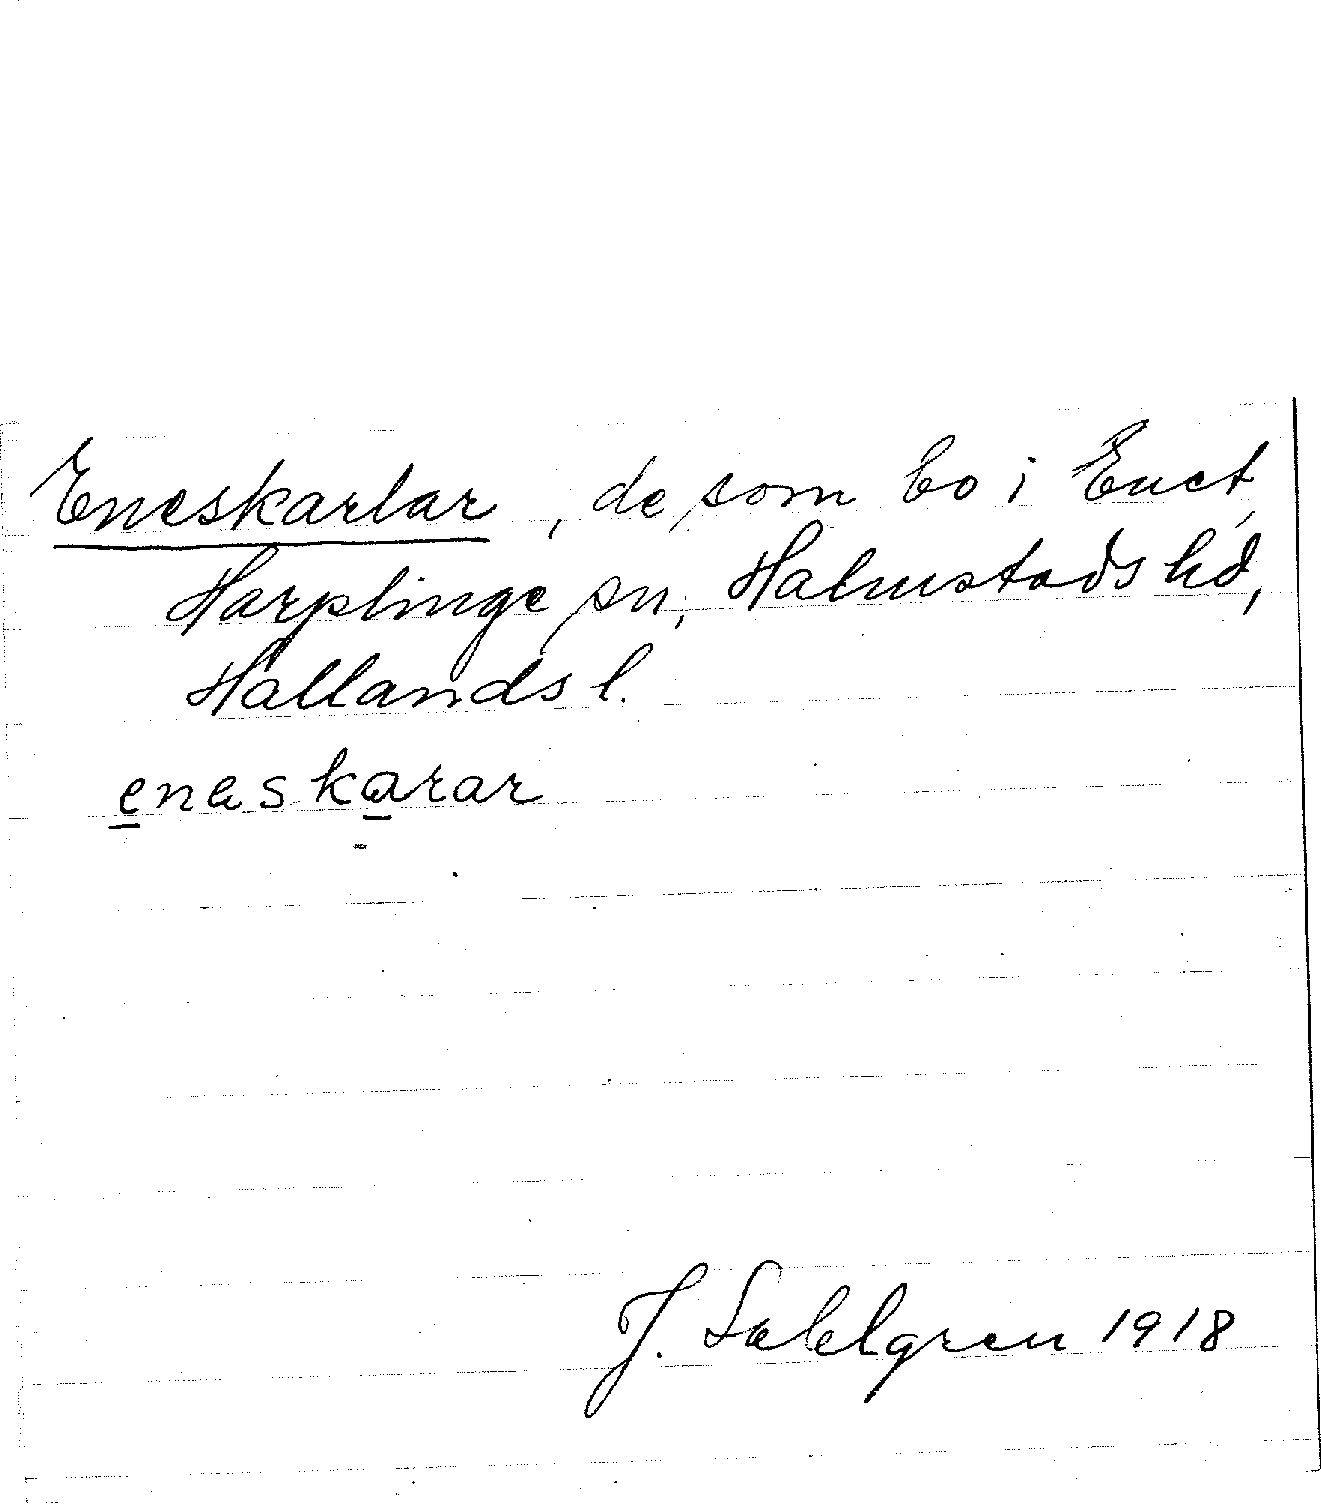 Eneskarlar, de som bo i Enet,
Harplinge sn, Halmstads hd,
Hallands l.
enaskarar
J. Sahlgren 1918